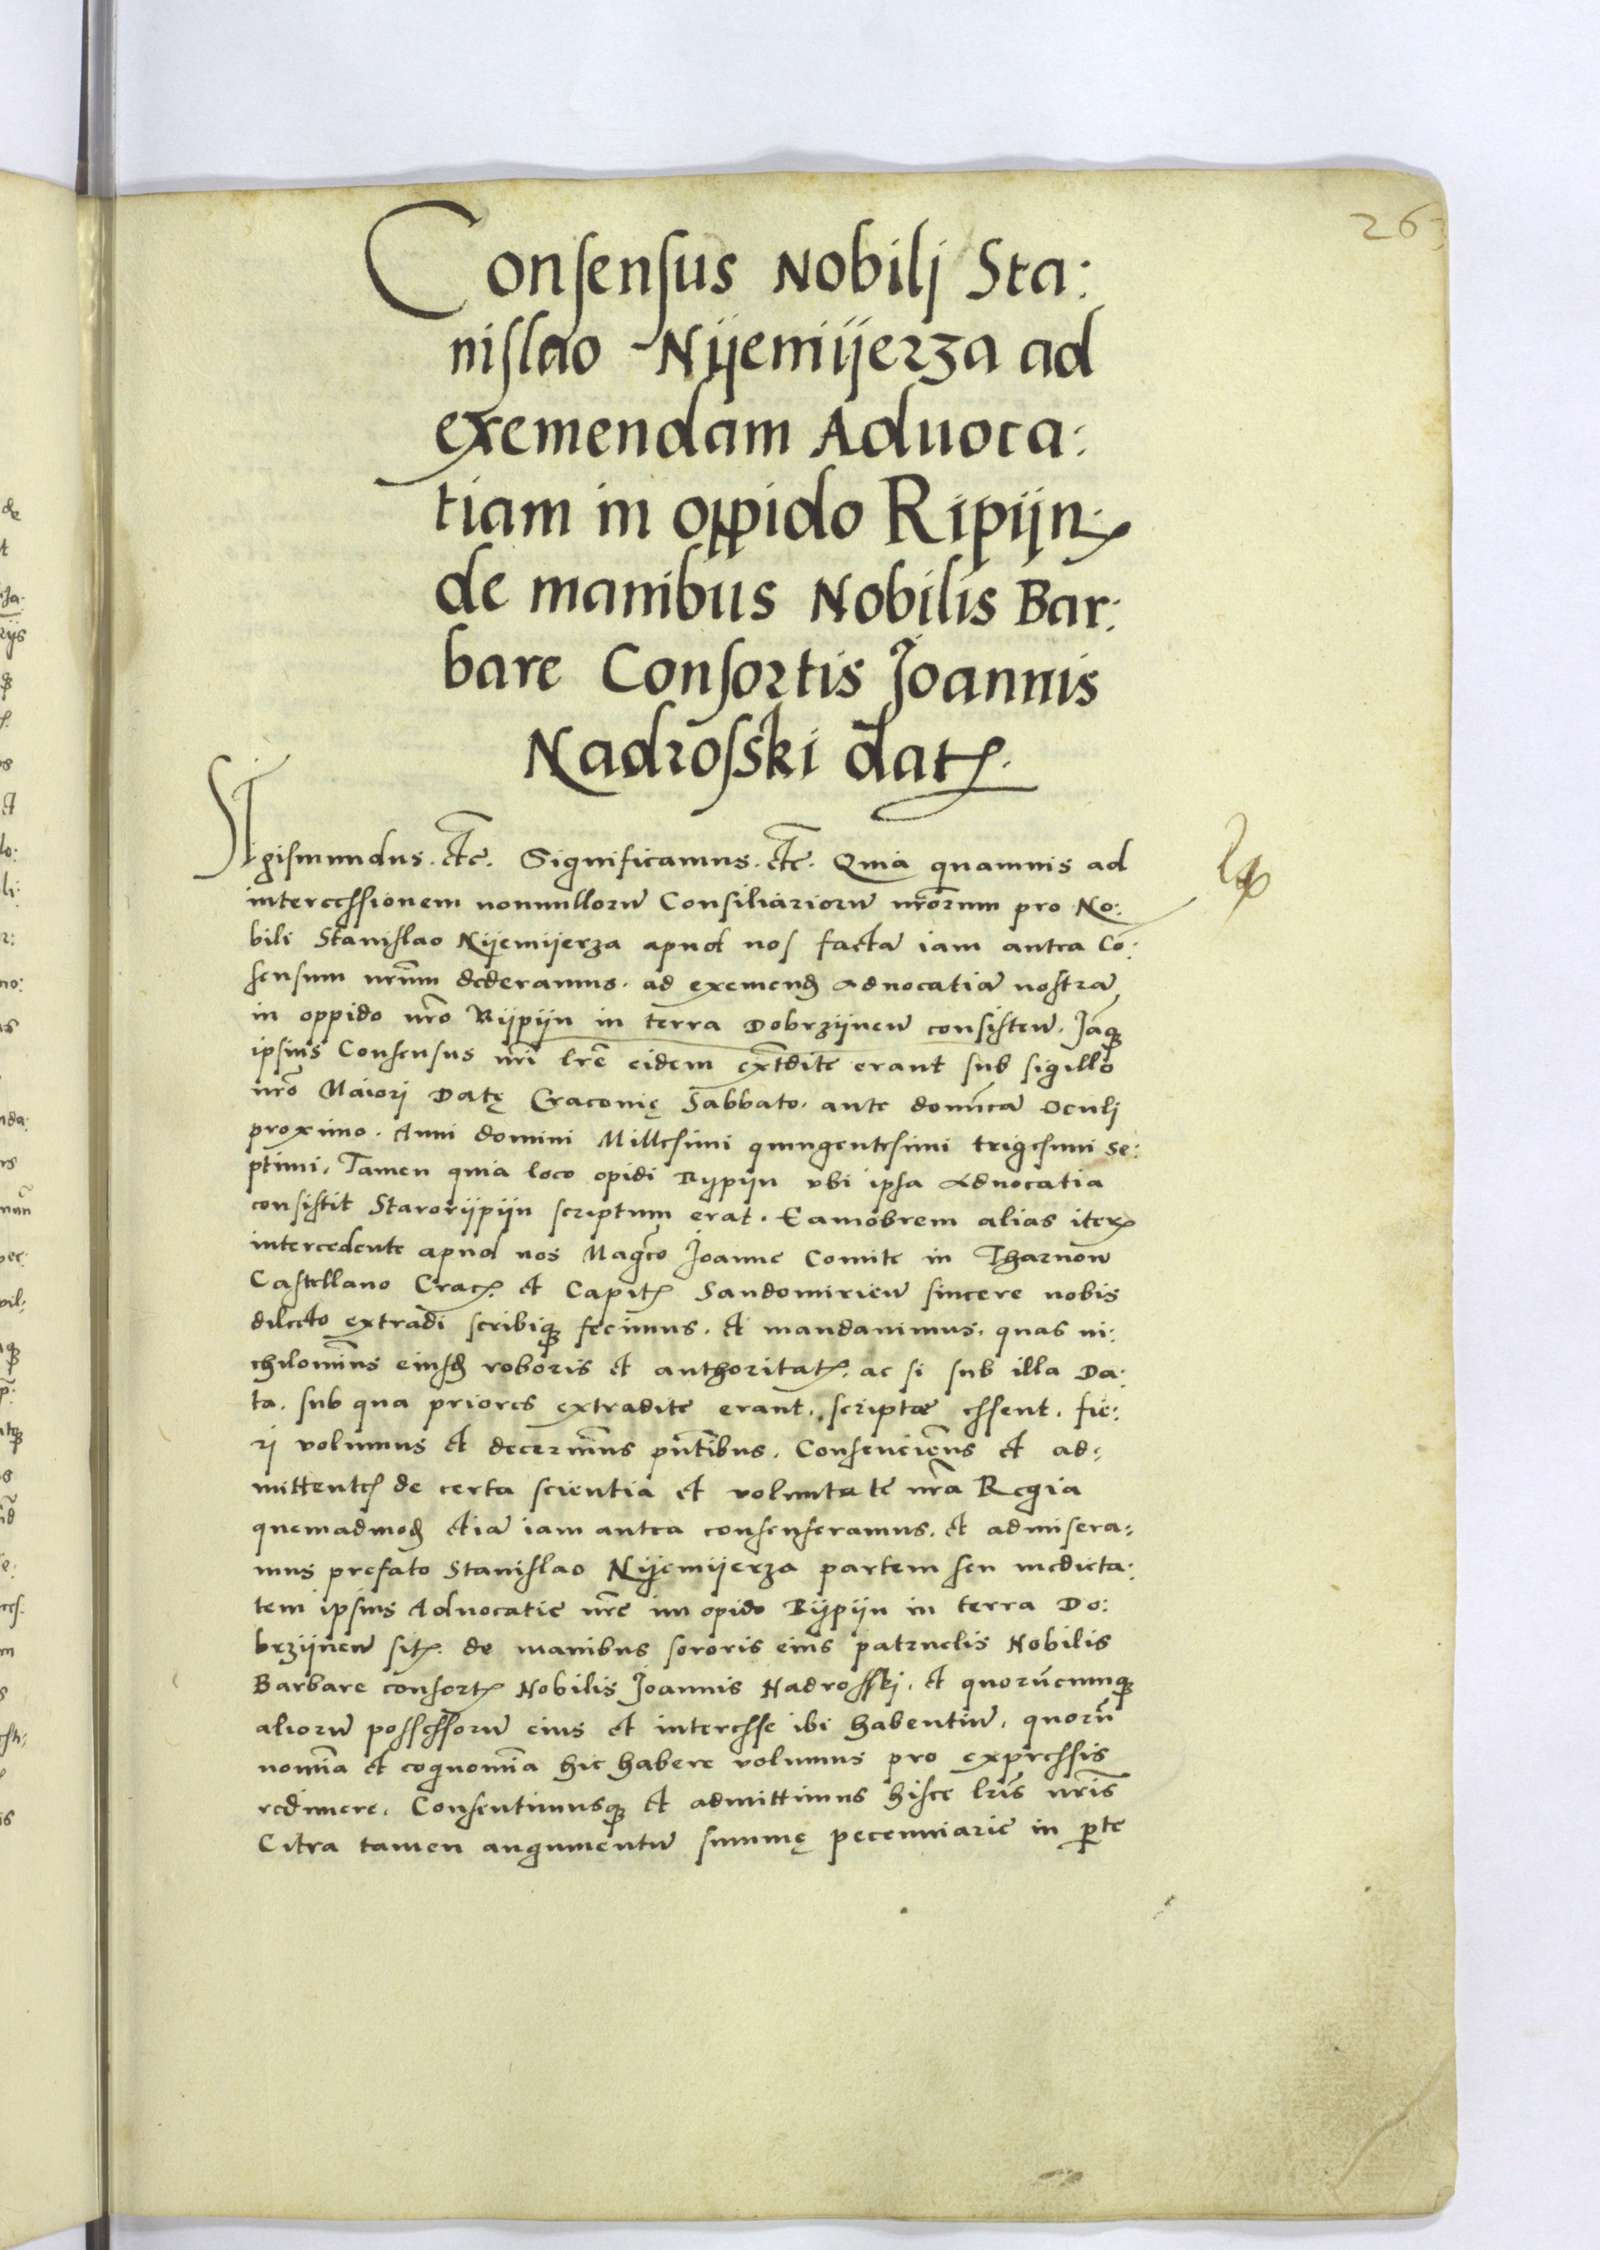 263
Consensus Nobilj Sta:
nislao Nijemijerza ad
exemendam Aduoca:
tiam in oppido Ripijn
de manibus Nobilis Bar:
bare Consortis Joannis
Nadrosski dat.
Sigismundus. etc. Significamus. etc. Quia quamuis ad
intercessionem nonnulloru Consiliarioru nrorum pro No:
bili Stanislao Nijemijerza apud nos facta iam antea Co:
sensum nrum dederamus. ad exemend Aduocatia nostra
in oppido nro Rijpijn in terra Dobrzijnen consisten. Jaq
ipsius Consensus nri lre eidem extdite erant sub sigillo
nro Maiorj Datę Cracouię Sabbato. ante domca Oculj
proximo. Anni domini Millesimi quingentesimi trigesimi se:
ptimi. Tamen quia loco opidi Rijpijn vbi ipsa Aduocatia
consistit Starorijpijn scriptum erat. Eamobrem alias iter
intercedente apud nos Magco Joanne Comite in Tharnow
Castellano Crac. et Capit Sandomirien sincere nobis
dilecto extradi scribiq fecimus. et mandauimus. quas ni:
chilomins eiusd roboris et authoritat. ac si sub illa Da:
ta. sub qua priores extradite erant. scriptæ essent. fie:
rj volumus et decernims pntibus. Consenciens et ad:
mittentes de certa scientia et voluntate nra Regia
quemadmod etia iam antea consenseramus. et admisera:
mus prefato Stanislao Nijemijerza partem seu medieta:
tem ipsius Aduocatie nre in opido Rijpijn in terra Do:
brzijnen sit. de manibus sororis eius patruelis Nobilis
Barbare consort Nobilis Joannis Nadrosskj. et quorucumq
alioru possessoru eius et interesse ibi habentiu. quoru
nomia et cognomia hic habere volumus pro expressis
redimere. Consentimusq et admittimus hisce lris nris
Citra tamen augumentu summę pecuniarie in pte